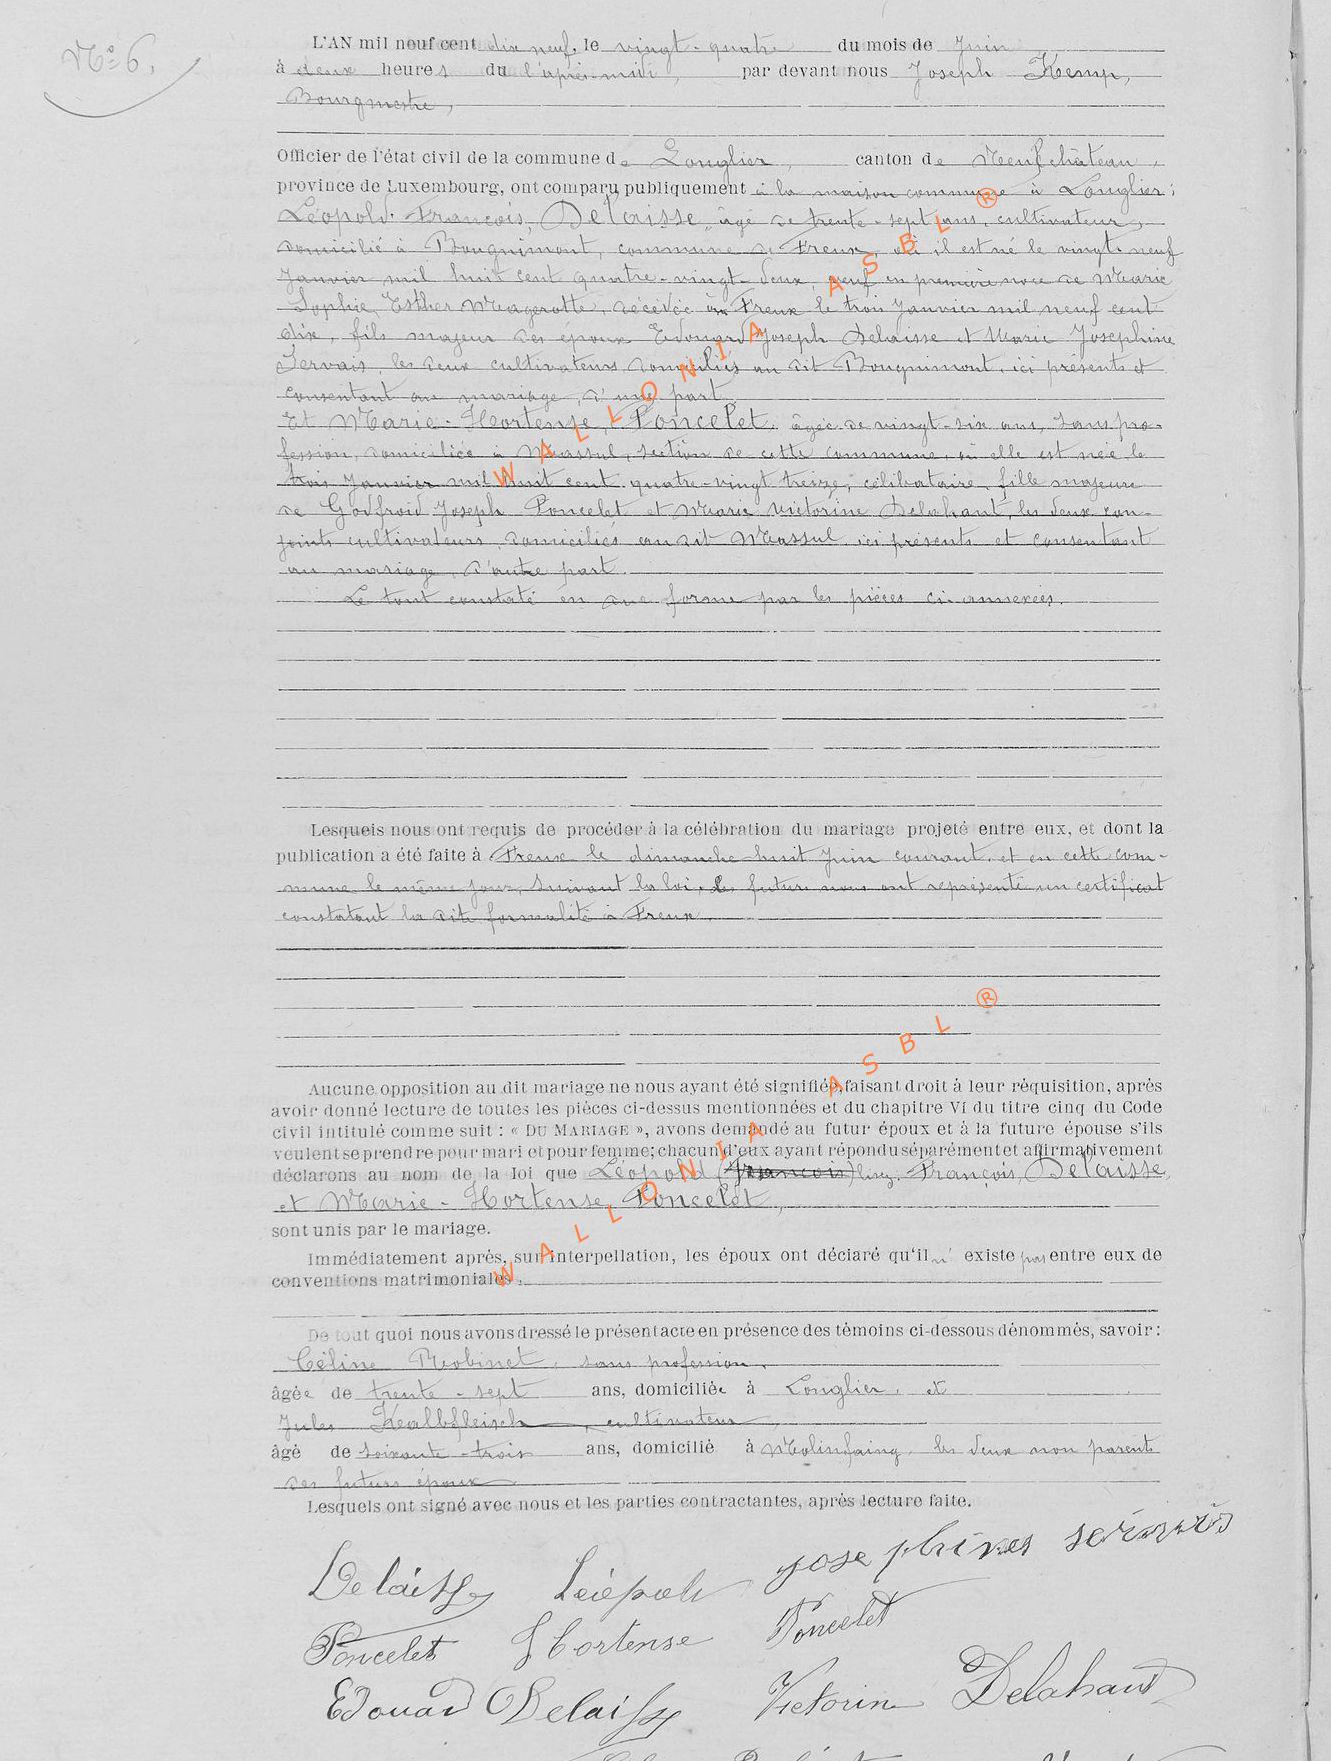 N° 6.
L'AN mil neuf cent dix neuf, le vingt-quatre du mois de Juin
à deux heures du l'après-midi, par devant nous Joseph Kemp,
Bourgmestre,
Officier de l'état civil de la commune de Longlier, canton de Neufchâteau,
province de Luxembourg, ont comparu publiquement à la maison commune à Longlier:
Léopold François, Delaisse, âgé de trente-sept ans, cultivateur,
domicilié à Bougnimont, commune de Freux, où il est né le vingt-neuf
Janvier mil huit cent quatre-vingt-deux, veuf en première noce de Marie
Sophie Esther Magerotte, décédée à Freux le trois Janvier mil neuf cent
dix, fils majeur des époux Edouard Joseph Delaisse et Marie Josephine
Servais, les deux cultivateurs domiciliés au dit Bougnimont, ici présents et
consentant au mariage, d'une part.
Et Marie-Hortense, Poncelet, âgée de vingt-six ans, sans pro-
fession, domiciliée à Massul, section de cette commune, où elle est née le
trois Janvier mil huit cent quatre-vingt treize, célibataire, fille majeure
de Godfroid Joseph Poncelet et Marie Victorine Delahant, les deux con-
joints cultivateurs, domiciliés au dit Massul, ici présents et consentant
au mariage, d'autre part.
Le tout constaté en due forme par les pièces ci-annexées.
Lesquels nous ont requis de procéder à la célébration du mariage projeté entre eux, et dont la
publication a été faite à Freux le dimanche huit Juin courant, et en cette com-
mune le même jour, suivant la loi, les futurs nous ont représenté un certificat
constatant la dite formalité à Freux.
Aucune opposition au dit mariage ne nous ayant été signifiée, faisant droit à leur réquisition, après
avoir donné lecture de toutes les pièces ci-dessus mentionnées et du chapitre VI du titre cinq du Code
civil intitulé comme suit : « DU MARIAGE », avons demandé au futur époux et à la future épouse s'ils
veulent se prendre pour mari et pour femme; chacun d'eux ayant répondu séparément et affirmativement
déclarons au nom de la loi que Léopold (François) lisez François, Delaisse,
et Marie-Hortense, Poncelet,
sont unis par le mariage.
Immédiatement après, sur interpellation, les époux ont déclaré qu'il n' existe pas entre eux de
conventions matrimoniales.
De tout quoi nous avons dressé le présent acte en présence des témoins ci-dessous dénommés, savoir :
Céline Robinet, sans profession,
âgée de trente-sept ans, domiciliée à Longlier, et
Jules Kalbfleisch, cultivateur,
âgé de soixante-trois ans, domicilié à Molinfaing, les deux non parents
des futurs époux.
Lesquels ont signé avec nous et les parties contractantes, après lecture faite.
Delaisse Léopold josephines servais
Poncelet Hortense Poncelet
Edouard Delaisse Victorine Delahaut
WALLONIA ASBL ®
WALLONIA ASBL ®